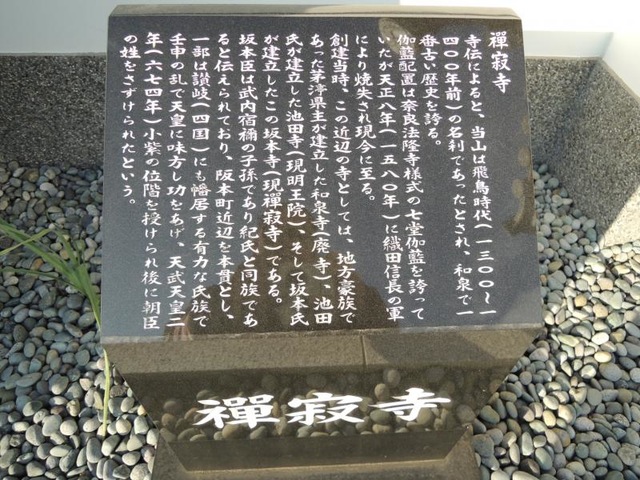 禪寂寺
寺伝によると、当山は飛鳥時代(一三〇〇〜一
四〇〇年前)の名刹であったとされ、和泉で一
番古い歴史を誇る。
伽藍配置は奈良法隆寺様式の七堂伽藍を誇って
いたが天正八年(一五八〇年)に織田信長の軍
により焼失され現今に至る。
創建当時、この近辺の寺としては、地方豪族で
あった茅渟県主が建立した和泉寺(廃寺)、池田
氏が建立した池田寺(現明王院)、そして坂本氏
が建立したこの坂本寺(現禪寂寺)である。
坂本臣は武内宿禰の子孫であり紀氏と同族であ
ると伝えられており、阪本町近辺を本貫とし、
一部は讃岐(四国)にも幡居する有力な氏族で
壬申の乱で天皇に味方し功をあげ、天武天皇二
年(六七四年)小紫の位階を授けられ後に朝臣
の姓をさずけられたという。
禪寂寺